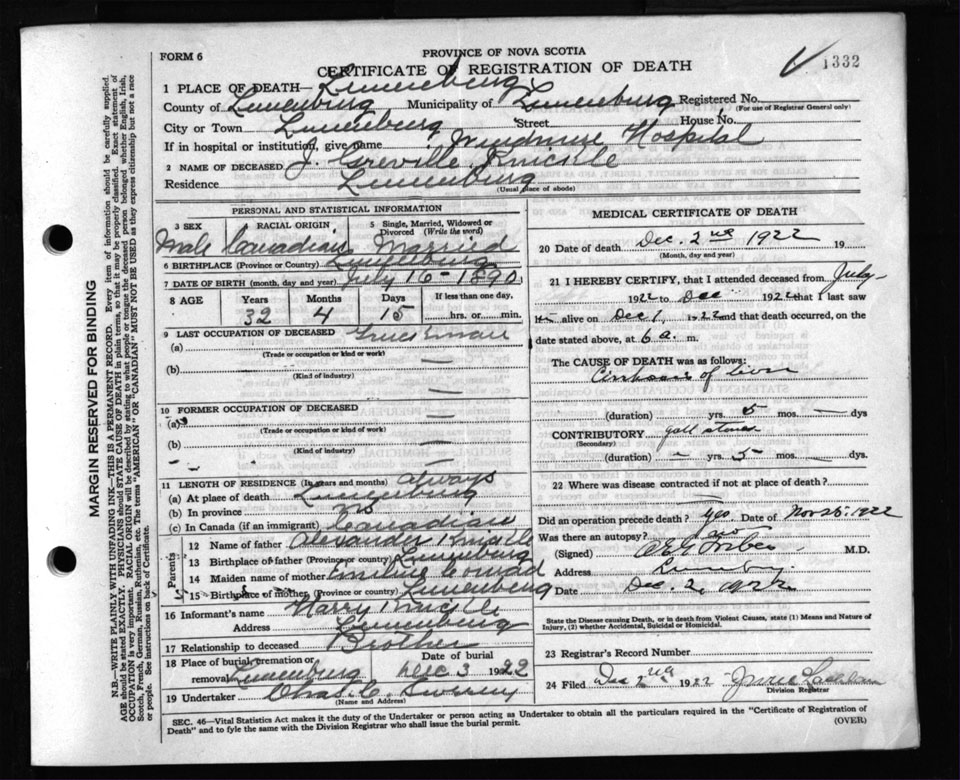 1332
FORM 6
PROVINCE OF NOVA SCOTIA
CERTIFICATE OF REGISTRATION OF DEATH
1 PLACE OF DEATH— Lunenburg
County of Lunenburg Municipality of Lunenburg Registered No.
(For use of Registrar General only)
City or Town Lunenburg Street House No.
If in hospital or institution, give name Hospital
2 NAME OF DECEASED J. Greville Knickle
Residence Lunenburg
(Usual place of abode)
PERSONAL AND STATISTICAL INFORMATION
3 SEX RACIAL ORIGIN 5 Single, Married, Widowed or Divorced (Write the word)
Male Canadian Married
6 BIRTHPLACE (Province or Country) Lunenburg
7 DATE OF BIRTH (month, day and year) July 16-1890
8 AGE Years Months Days If less than one day,
32 4 15 hrs. or min.
9 LAST OCCUPATION OF DECEASED
(a)
(Trade or occupation or kind of work)
(b) —
(Kind of industry)
10 FORMER OCCUPATION OF DECEASED
(a) —
(Trade or occupation or kind of work)
(b) —
(Kind of industry)
11 LENGTH OF RESIDENCE (In years and months) always
(a) At place of death Lunenburg
(b) In province
(c) In Canada (if an immigrant) Canadian
Parents
12 Name of father Alexander Knickle
13 Birthplace of father (Province or country) Lunenburg
14 Maiden name of mother Conrad
15 Birthplace of mother (Province or country) Lunenburg
16 Informant's name Harry Knickle
Address Lunenburg
17 Relationship to deceased Brother
18 Place of burial, cremation or removal Lunenburg Date of burial Dec 3 1922
19 Undertaker Chas. C.
(Name and Address)
MEDICAL CERTIFICATE OF DEATH
20 Date of death Dec. 2nd 1922 19
(Month, day and year)
21 I HEREBY CERTIFY, that I attended deceased from July
1922 to Dec 1922 that I last saw
alive on Dec 1, 1922 and that death occurred, on the
date stated above, at 6 a. m.
The CAUSE OF DEATH was as follows:
Cirrhosis of liver
(duration) yrs. 5 mos. — dys
CONTRIBUTORY gall stones
(Secondary)
(duration) — yrs. 5 mos. dys
22 Where was disease contracted if not at place of death?
Did an operation precede death? yes Date of Nov 25, 1922
Was there an autopsy? no
(Signed) M.D.
Address
Date Dec. 2, 1922
State the Disease causing Death, or in death from Violent Causes, state (1) Means and Nature of Injury, (2) whether Accidental, Suicidal or Homicidal.
23 Registrar's Record Number
24 Filed Dec 2nd 1922
Division Registrar
SEC. 46—Vital Statistics Act makes it the duty of the Undertaker or person acting as Undertaker to obtain all the particulars required in the "Certificate of Registration of
Death" and to fyle the same with the Division Registrar who shall issue the burial permit. (OVER)
MARGIN RESERVED FOR BINDING
N.B.—WRITE PLAINLY WITH UNFADING INK—THIS IS A PERMANENT RECORD. Every item of information should be carefully supplied.
AGE should be stated EXACTLY. PHYSICIANS should STATE CAUSE OF DEATH in plain terms, so that it may be properly classified. Exact statement of
OCCUPATION is very important. RACIAL ORIGIN will be described by stating to what people or tongue the deceased person belonged whether English, Irish,
Scotch, French, German, Russian, Ruthenian, etc. The terms "AMERICAN" OR "CANADIAN" MUST NOT BE USED as they express citizenship but not a race
or people. See instructions on back of Certificate.